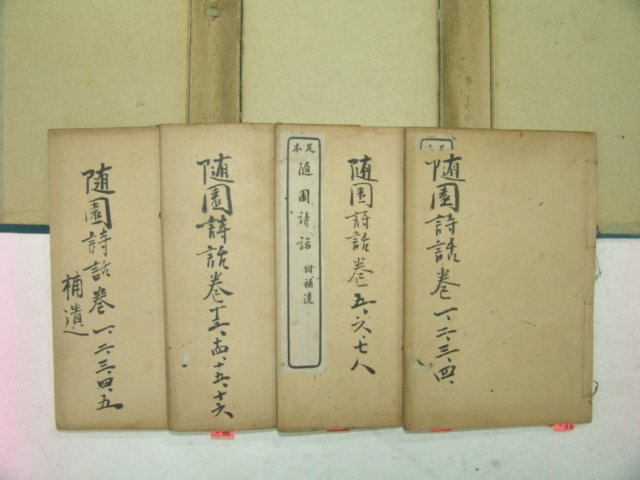 随園詩話卷一、二、三、四、
随園詩話卷五、六、七、八
足本
随園詩話 附補遺
随園詩話卷十三、十四、十五、十六
随園詩話卷一、二、三、四、五
補遺